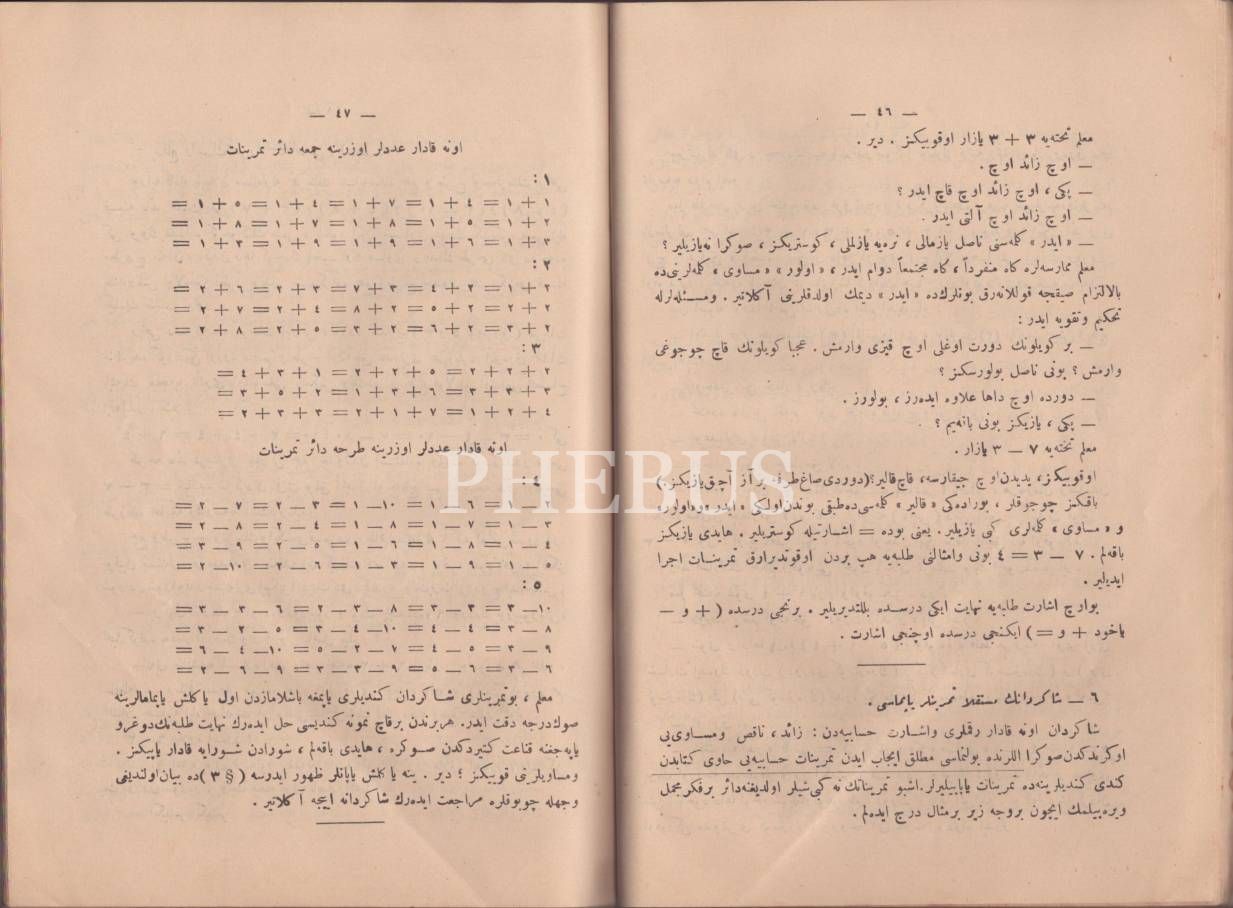 — ٤٦ —
معلم تخته‌یه ٣ + ٣ یازار اوقوییكز . دیر .
— اوچ زائد اوچ .
— پكی ، اوچ زائد اوچ قاچ ایدر ؟
— اوچ زائد اوچ آلتی ایدر .
— « ایدر » كله‌سنی ناصل یازمالی ، نره‌یه یازلملی ، كوستریكز ، صوكرا نه‌یازیلیر ؟
معلم ممارسه‌لره كاه منفرداً ، كاه مجتمعاً دوام ایدر ، « اولور » « مساوی » كله‌لرینی‌ده
بالالتزام صیقجه قوللانه‌رق بونلرك‌ده « ایدر » دیمك اولدقلرینی آكلاتیر . ومسئله‌لرله
تحكیم وتقویه ایدر :
— بر كویلونك دورت اوغلی اوچ قیزی وارمش . عجبا كویلونك قاچ چوجوغی
وارمش ؟ بونی ناصل بولورسكز ؟
— دورده اوچ داها علاوه ایده‌رز ، بولورز .
— پكی ، یازیكز بونی باقه‌یم ؟
معلم تخته‌یه ٧ — ٣ یازار .
اوقوییكز ، یدیدن اوچ چیقارسه ، قاچ قالیر؟ (دوردی صاغ طرفه بر آز آچق یازیكز.)
باقكز چوجوقلر ، بوراده‌كی « قالیر » كله‌سی‌ده طبقی بوندن اولكی « ایدر » و « اولور »
و « مساوی » كله‌لری كبی یازیلیر . یعنی بوده = اشارتیله كوستریلیر . هایدی یازیكز
باقه‌لم . ٧ — ٣ = ٤ بونی وامثالنی طلبه‌یه هپ بردن اوقوتدیرارق تمرینات اجرا
ایدیلیر .
بواوچ اشارت طلبه‌یه نهایت ایكی درسده بللتدیریلیر . برنجی درسده ( + و —
یاخود + و = ) ایكنجی درسده اوچنجی اشارت .
٦ — شاكردانك مستقلاً تمرینلر یاپماسی .
شاكردان اونه قادار رقملری واشارت حسابیه‌دن : زائد ، ناقص ومساوی‌یی
اوكرندكدن صوكرا اللرنده بولنماسی مطلق ایجاب ایدن تمرینات حسابیه‌یی حاوی كتابدن
كندی كندیلرینه‌ده تمرینات یاپابیلیرلر. اشبو تمریناتك نه كبی شیلر اولدیغنه‌دائر برفكر مجمل
ویره‌بیلمك ایچون بروجه زیر بر مثال درج ایده‌لم .
— ٤٧ —
اونه قادار عددلر اوزرینه جمعه دائر تمرینات
١ :
١ + ١ = ٤ + ١ = ٧ + ١ = ٤ + ١ = ٥ + ١ =
٢ + ١ = ٥ + ١ = ٨ + ١ = ٧ + ١ = ٨ + ١ =
٣ + ١ = ٦ + ١ = ٩ + ١ = ٩ + ١ = ٣ + ١ =
٢ :
١ + ٢ = ٤ + ٢ = ٧ + ٣ = ٣ + ٢ = ٦ + ٢ =
٢ + ٢ = ٥ + ٢ = ٨ + ٢ = ٤ + ٢ = ٧ + ٢ =
٣ + ٢ = ٦ + ٢ = ٣ + ٢ = ٥ + ٢ = ٨ + ٢ =
٣ :
٢ + ٢ + ٢ = ٥ + ٢ + ٢ = ١ + ٣ + ٤ =
٣ + ٣ + ٣ = ٦ + ٣ + ١ = ٢ + ٥ + ٣ =
٤ + ٢ + ١ = ٧ + ١ + ٢ = ٣ + ٣ + ٢ =
اونه قادار عددلر اوزرینه طرحه دائر تمرینات
٤ :
٢ — ١ = ٦ — ١ = ١٠ — ١ = ٣ — ٢ = ٧ — ٢ =
٣ — ١ = ٧ — ١ = ٨ — ١ = ٤ — ٢ = ٨ — ٢ =
٤ — ١ = ٨ — ١ = ٦ — ١ = ٥ — ٢ = ٩ — ٣ =
٥ — ١ = ٩ — ١ = ٣ — ١ = ٦ — ٢ = ١٠ — ٢ =
٥ :
١٠ — ٣ = ٣ — ٣ = ٨ — ٣ — ٢ = ٦ — ٣ — ٣ =
٨ — ٣ = ٤ — ٤ = ١٠ — ٤ — ٣ = ٥ — ٢ — ٣ =
٩ — ٣ = ٥ — ٤ = ٧ — ٢ — ٥ = ١٠ — ٤ — ٦ =
٦ — ٣ = ٦ — ٥ = ٩ — ٣ — ٣ = ٩ — ٦ — ٢ =
معلم ، بوتمرینلری شاكردان كندیلری یاپمغه باشلامازدن اول یاكلش یاپماملرینه
صوك درجه دقت ایدر. هربرندن برقاچ نمونه كندیسی حل ایده‌رك نهایت طلبه‌نك دوغرو
یاپه‌جغنه قناعت كتیردكدن صوكره ، هایدی باقه‌لم ، شورادن شورایه قادار یاپیكز .
ومساویلرینی قوییكز ؛ دیر . ینه یاكلش یاپانلر ظهور ایدرسه ( § ٣ ) ده بیان اولندیغی
وجهله چوبوقلره مراجعت ایده‌رك شاكردانه اییجه آكلاتیر .
PHEBUS